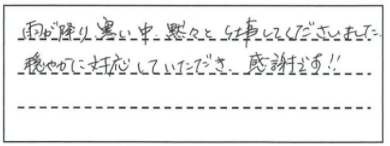 雨が降り寒い中、黙々と仕事してくださいました。
穏やかに対応していただき、感謝です!!